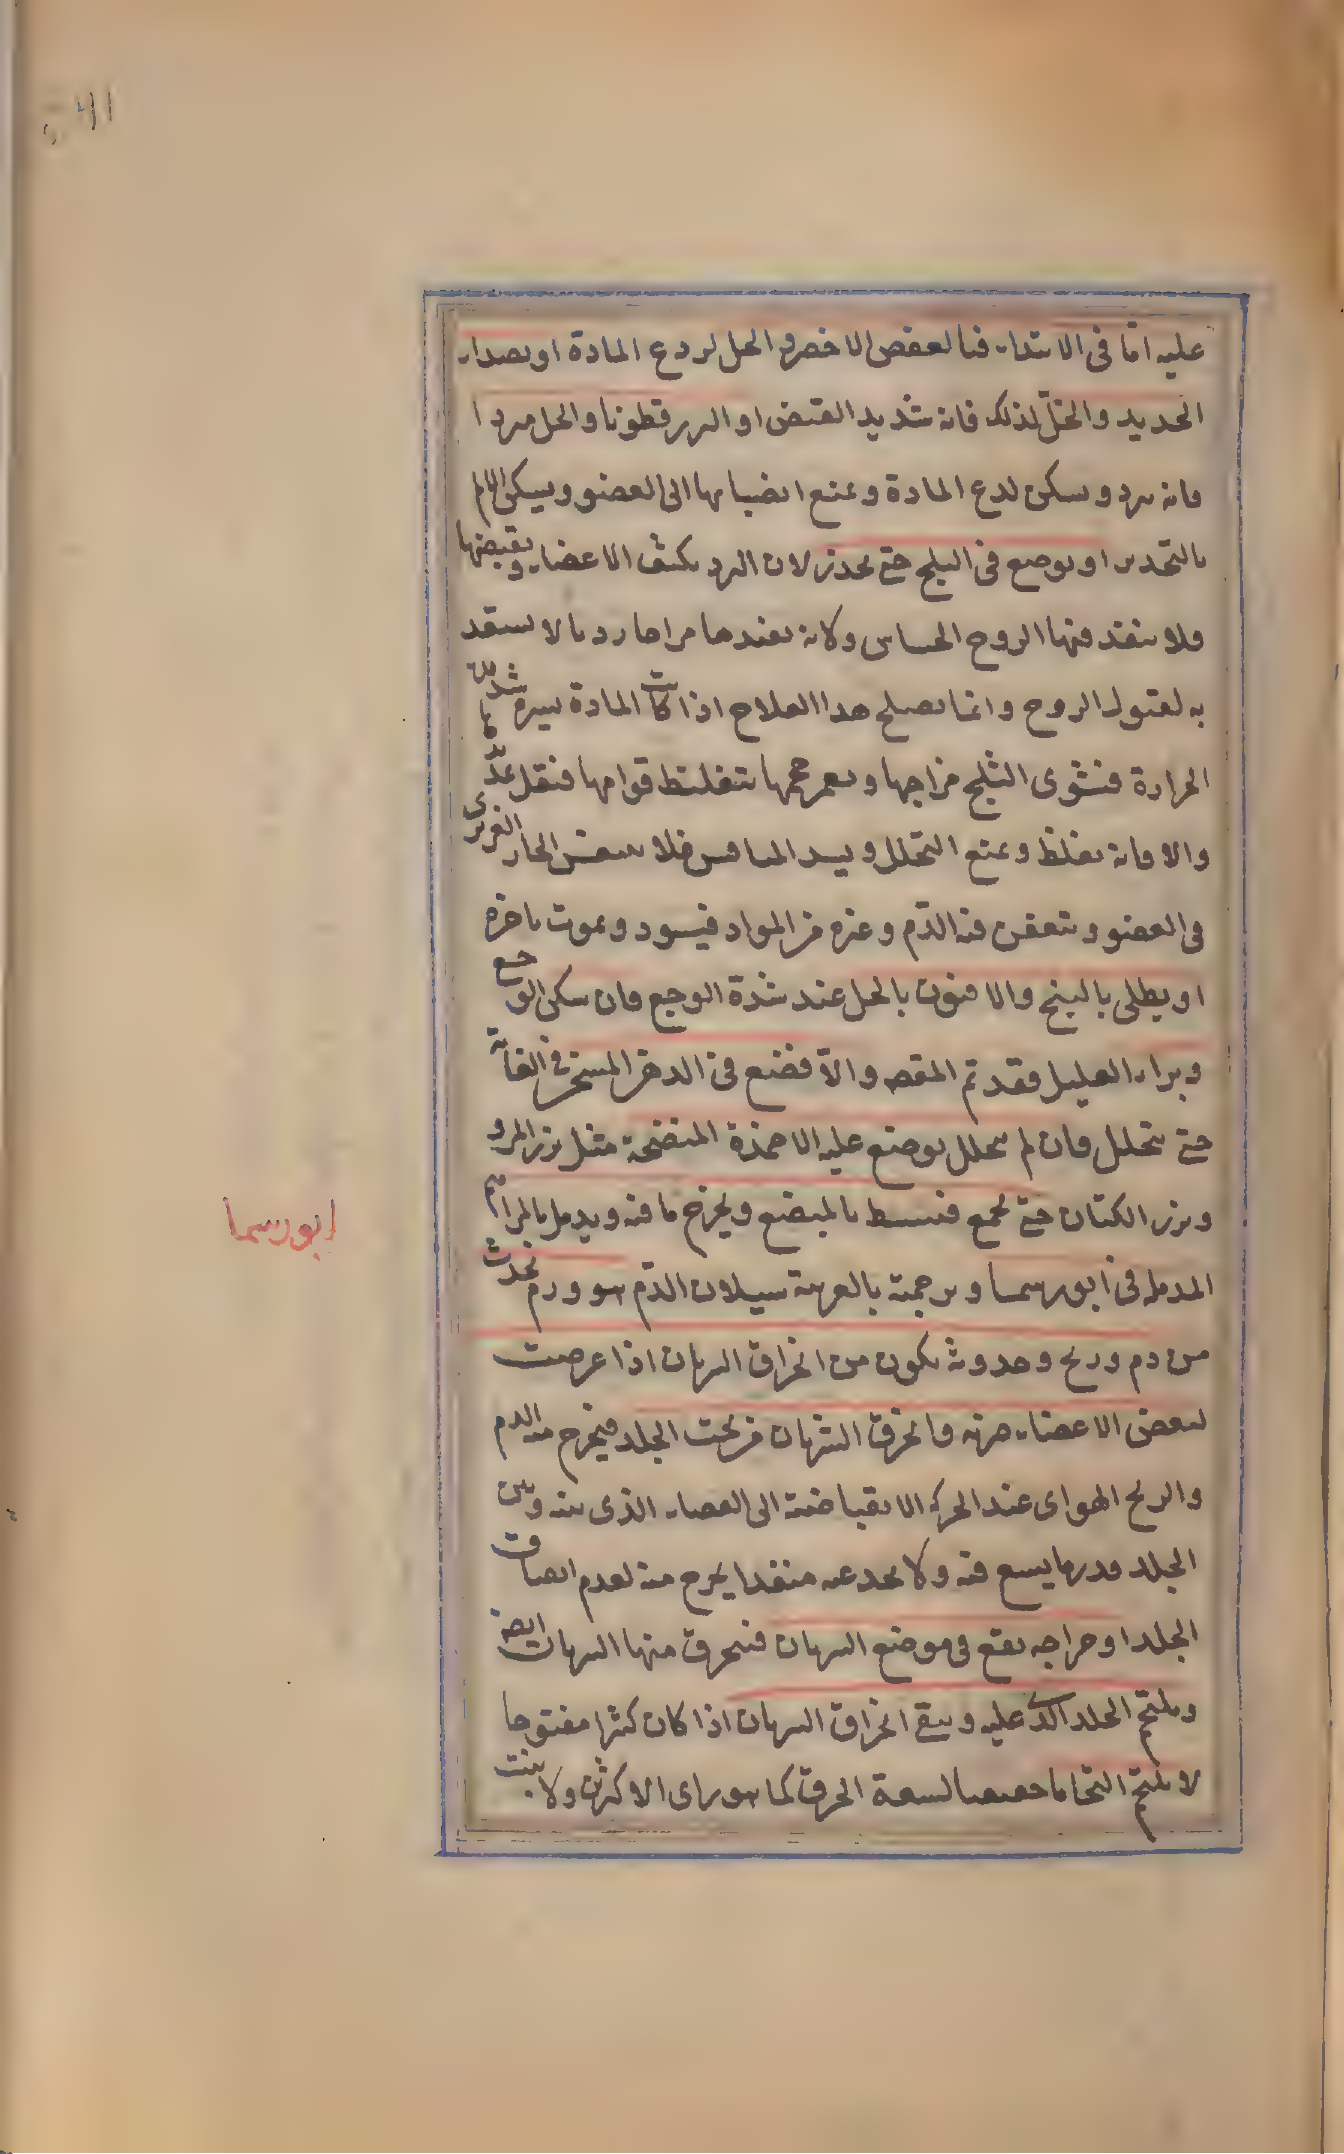 عليه اما فى الابتداء فبالعفص الاخضر و الخل لردع المادة او بصداء
الحديد والخلّ لذلك فانه شديد القبض او البزرقطونا والخل مبردا
فانه يبرد ويسكن لذع المادة و يمنع انصبابها الى العضو ويسكن الالم
بالتخدير او يوضع فى الثلج حتى يخدر لان البرد يكثف الاعضاء ويقبضها
فلا ينفذ فيها الروح الحساس ولانه يفيدها مزاجا رديا لا يستعد
به لقبول الروح وانما يصلح هذا العلاج اذا كانت المادة يسيرة شديدة
الحرارة فيستوى الثلج مزاجها ويصغر حجمها بتغليظ قوامها فيقل تمدّدها
والا فانه يغلظ و يمنع التحلل و يسد المنافس فلا يتنفس الحار الغريزى
فى العضو و يتعفن فيه الدّم و غيره من المواد فيسود و يموت باخره
او يطلى بالبنج والافيون بالخل عند شدة الوجع فان سكن الوجع
وبراء العليل فقد تم المقصـ والاّ فضع فى الدهن المسخن فى الغاية
حتى يتحلل فان لم يتحلل يوضع عليه الاضمدة المنضجة مثل بزر المرو
وبزر الكتان حتى يجمع فيبط بالمبضع و يخرج ما فيه و يدمل بالمراهم
المدمله فى ابورسما و ترجمته بالعربية سيلان الدّم هو ورم يحدث
من دم وريح وحدوثه يكون من انخراق الشريان اذا عرضت
لبعض الاعضاء ضربه فانخرق الشريان من تحت الجلد فيخرج منه الدم
والريح الهوائى عند الحركة الانقباضية الى الفضاء الذى بينه وبين
الجلد قدر ما يسع فيه ولا يجد عنه منفذا يخرج منه لعدم انصداق
الجلد او جراحه يقع فى موضع الشريان فينخرق منها الشريان ايضا
ويلتحم الجلد الذى عليه و يبقى انخراق الشريان اذا كان كثيرا مفتوحا
لا يلتحم التحاما حقيقيا لسعة الخرق كما هو راى الاكثرين ولا ينبت
ابورسما